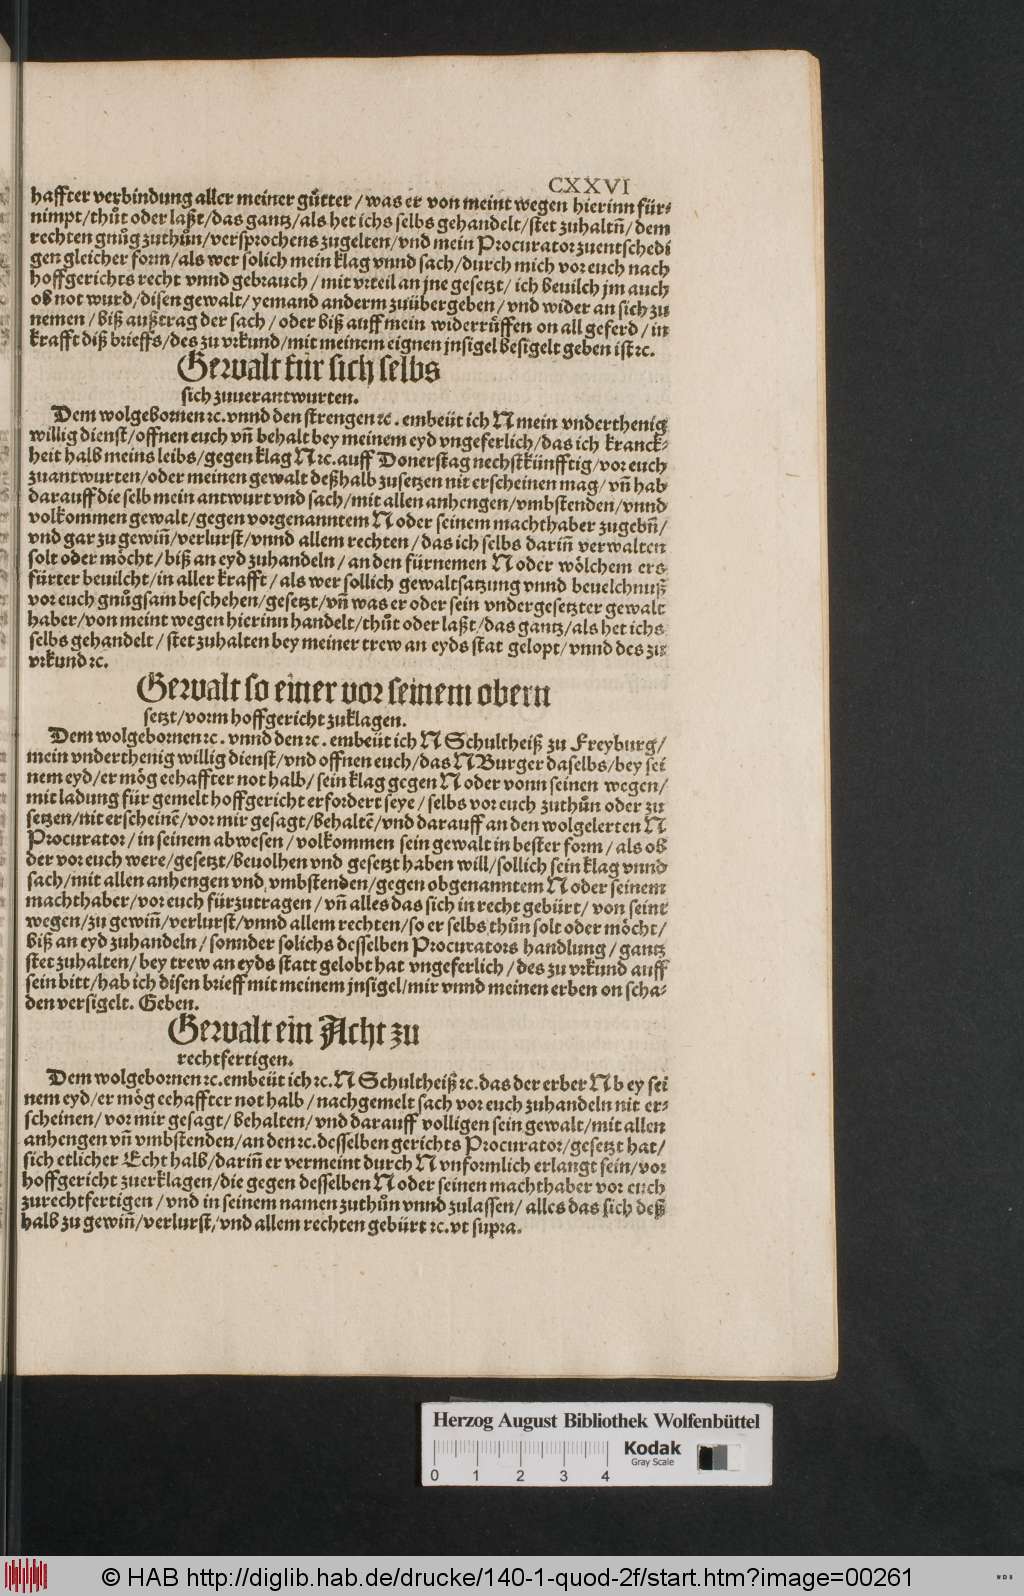 CXXVI
haffter verbindung aller meiner guͤtter / was er von meint wegen hierinn für⸗
nimpt/thuͦt oder laßt/das gantz/als het ichs selbs gehandelt/stet zuhaltñ/ dem
rechten gnuͦg zuthuͦn/versprochens zugelten/vnd mein Procurator zuentschedi
gen gleicher form/als wer solich mein klag vnnd sach/durch mich vor euch nach
hoffgerichts recht vnnd gebrauch / mit vrteil an jne gesetzt/ ich beuilch jm auch
ob not wurd/disen gewalt/ yemand anderm zuübergeben/ vnd wider an sich zu
nemen / biß außtrag der sach / oder biß auff mein widerruͤffen on all geferd / in
krafft diß brieffs/des zu vrkund/mit meinem eignen jnsigel besigelt geben ist ꝛc.
Gewalt für sich selbs
sich zuuerantwurten.
Dem wolgebornen ꝛc. vnnd den strengen ꝛc. embeüt ich N mein vnderthenig
willig dienst/offnen euch vñ behalt bey meinem eyd vngeferlich/das ich kranck⸗
heit halb meins leibs/gegen klag N ꝛc. auff Donerstag nechstkünfftig/vor euch
zuantwurten/oder meinen gewalt deßhalb zusetzen nit erscheinen mag/ vñ hab
darauff die selb mein antwurt vnd sach/mit allen anhengen/vmbstenden/vnnd
volkommen gewalt/gegen vorgenanntem N oder seinem machthaber zugebñ/
vnd gar zu gewiñ/verlurst/vnnd allem rechten / das ich selbs dariñ verwalten
solt oder moͤcht / biß an eyd zuhandeln / an den fürnemen N oder woͤlchem ers
fürter beuilcht/in aller krafft / als wer sollich gewaltsatzung vnnd beuelchnuß
vor euch gnuͦgsam beschehen/gesetzt/vñ was er oder sein vndergesetzter gewalt
haber/von meint wegen hierinn handelt/thuͦt oder laßt/das gantz/als het ichs
selbs gehandelt / stet zuhalten bey meiner trew an eyds stat gelopt/ vnnd des zu
vrkund ꝛc.
Gewalt so einer vor seinem obern
setzt/vorm hoffgericht zuklagen.
Dem wolgebornen ꝛc. vnnd den ꝛc. embeüt ich N Schultheiß zu Freyburg/
mein vnderthenig willig dienst/vnd offnen euch/das N Burger daselbs/bey sei
nem eyd/er moͤg eehaffter not halb/ sein klag gegen N oder vonn seinen wegen/
mit ladung für gemelt hoffgericht erfordert seye / selbs vor euch zuthuͦn oder zu
setzen/nit erscheinē/vor mir gesagt/behaltē/vnd darauff an den wolgelerten N
Procurator/in seinem abwesen / volkommen sein gewalt in bester form / als ob
der vor euch were/gesetzt/beuolhen vnd gesetzt haben will/sollich sein klag vnnd
sach/mit allen anhengen vnd vmbstenden/gegen obgenanntem N oder seinem
machthaber/vor euch fürzutragen / vñ alles das sich in recht gebürt/ von seint
wegen/zu gewiñ/verlurst/vnnd allem rechten/so er selbs thuͦn solt oder moͤcht/
biß an eyd zuhandeln / sonnder solichs desselben Procurators handlung / gantz
stet zuhalten/ bey trew an eyds statt gelobt hat vngeferlich / des zu vrkund auff
sein bitt/hab ich disen brieff mit meinem jnsigel/mir vnnd meinen erben on scha⸗
den versigelt. Geben.
Gewalt ein Acht zu
rechtfertigen.
Dem wolgebornen ꝛc. embeüt ich ꝛc. N Schultheiß ꝛc. das der erber N bey sei
nem eyd/er moͤg eehaffter not halb / nachgemelt sach vor euch zuhandeln nit er⸗
scheinen/ vor mir gesagt/ behalten/ vnd darauff volligen sein gewalt/mit allen
anhengen vñ vmbstenden/an den ꝛc. desselben gerichts Procurator/gesetzt hat/
sich etlicher Echt halb/dariñ er vermeint durch N vnformlich erlangt sein/vor
hoffgericht zuerklagen/die gegen desselben N oder seinen machthaber vor euch
zurechtfertigen / vnd in seinem namen zuthuͦn vnnd zulassen/ alles das sich deß
halb zu gewiñ/verlurst/vnd allem rechten gebürt ꝛc. vt supra.
Herzog August Bibliothek Wolfenbüttel
0 1 2 3 4
Kodak
Gray Scale
© HAB http://diglib.hab.de/drucke/140-1-quod-2f/start.htm?image=00261